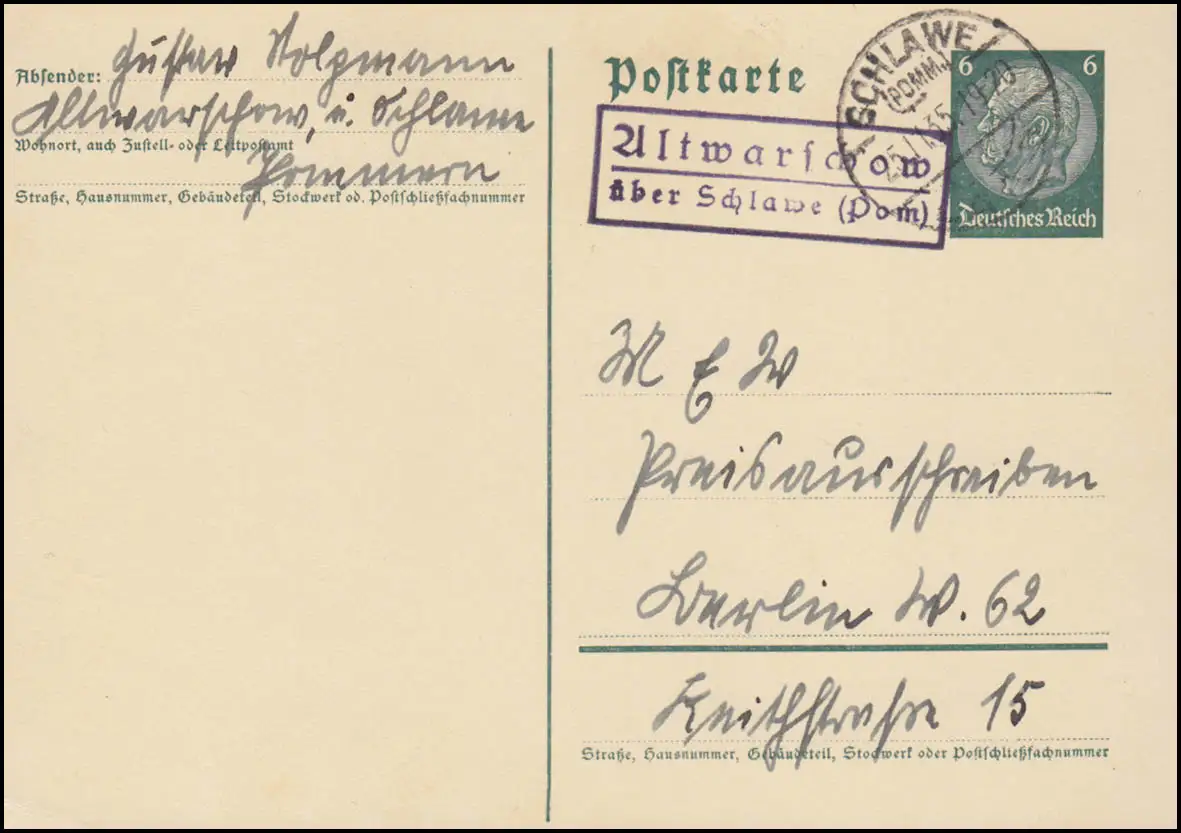 Absender: Gustav Volzmann
Altwarschow, ü. Schlawe
Wohnort, auch Zustell- oder Leitpostamt
Pommern
Straße, Hausnummer, Gebäudeteil, Stockwerk od. Postschließfachnummer
Postkarte
SCHLAWE
(POMM.)
Altwarschow
über Schlawe (Pom)
6 6
Deutsches Reich
M E W
Preisausschreiben
Berlin W. 62
Keithstraße 15
Straße, Hausnummer, Gebäudeteil, Stockwerk oder Postschließfachnummer